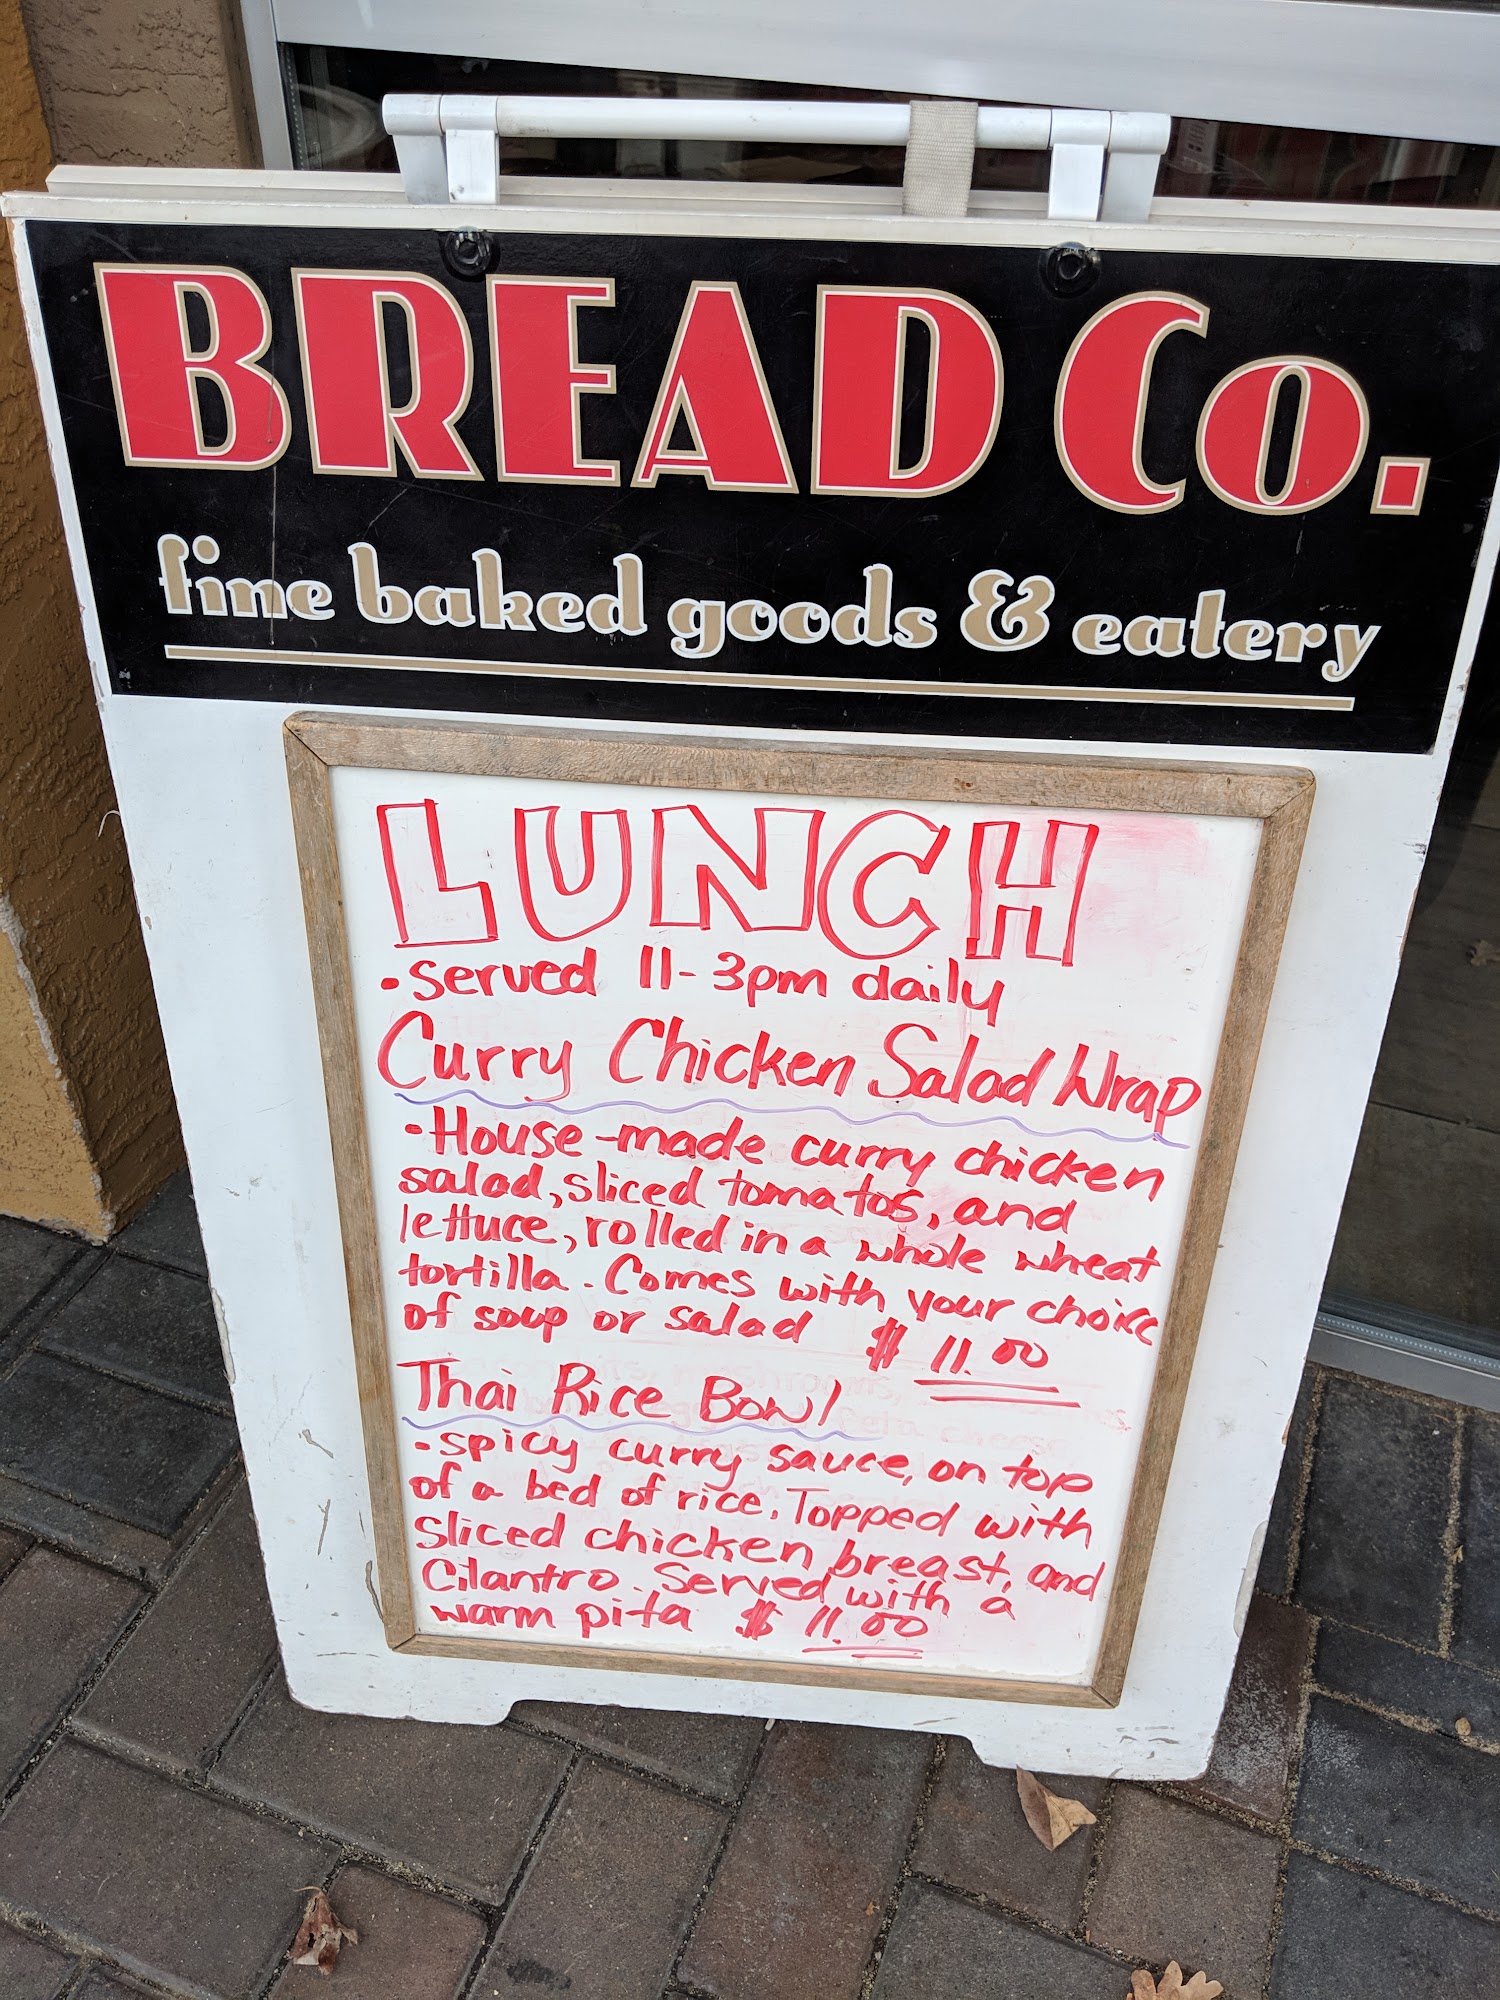 BREAD Co.
fine baked goods & eatery
LUNCH
• Served 11-3pm daily
Curry Chicken Salad Wrap
• House-made curry chicken
salad, sliced tomatos, and
lettuce, rolled in a whole wheat
tortilla. Comes with your choice
of soup or salad $ 11.00
Thai Rice Bowl
- spicy curry sauce, on top
of a bed of rice. Topped with
sliced chicken breast, and
Cilantro. Served with a
warm pita $ 11.00